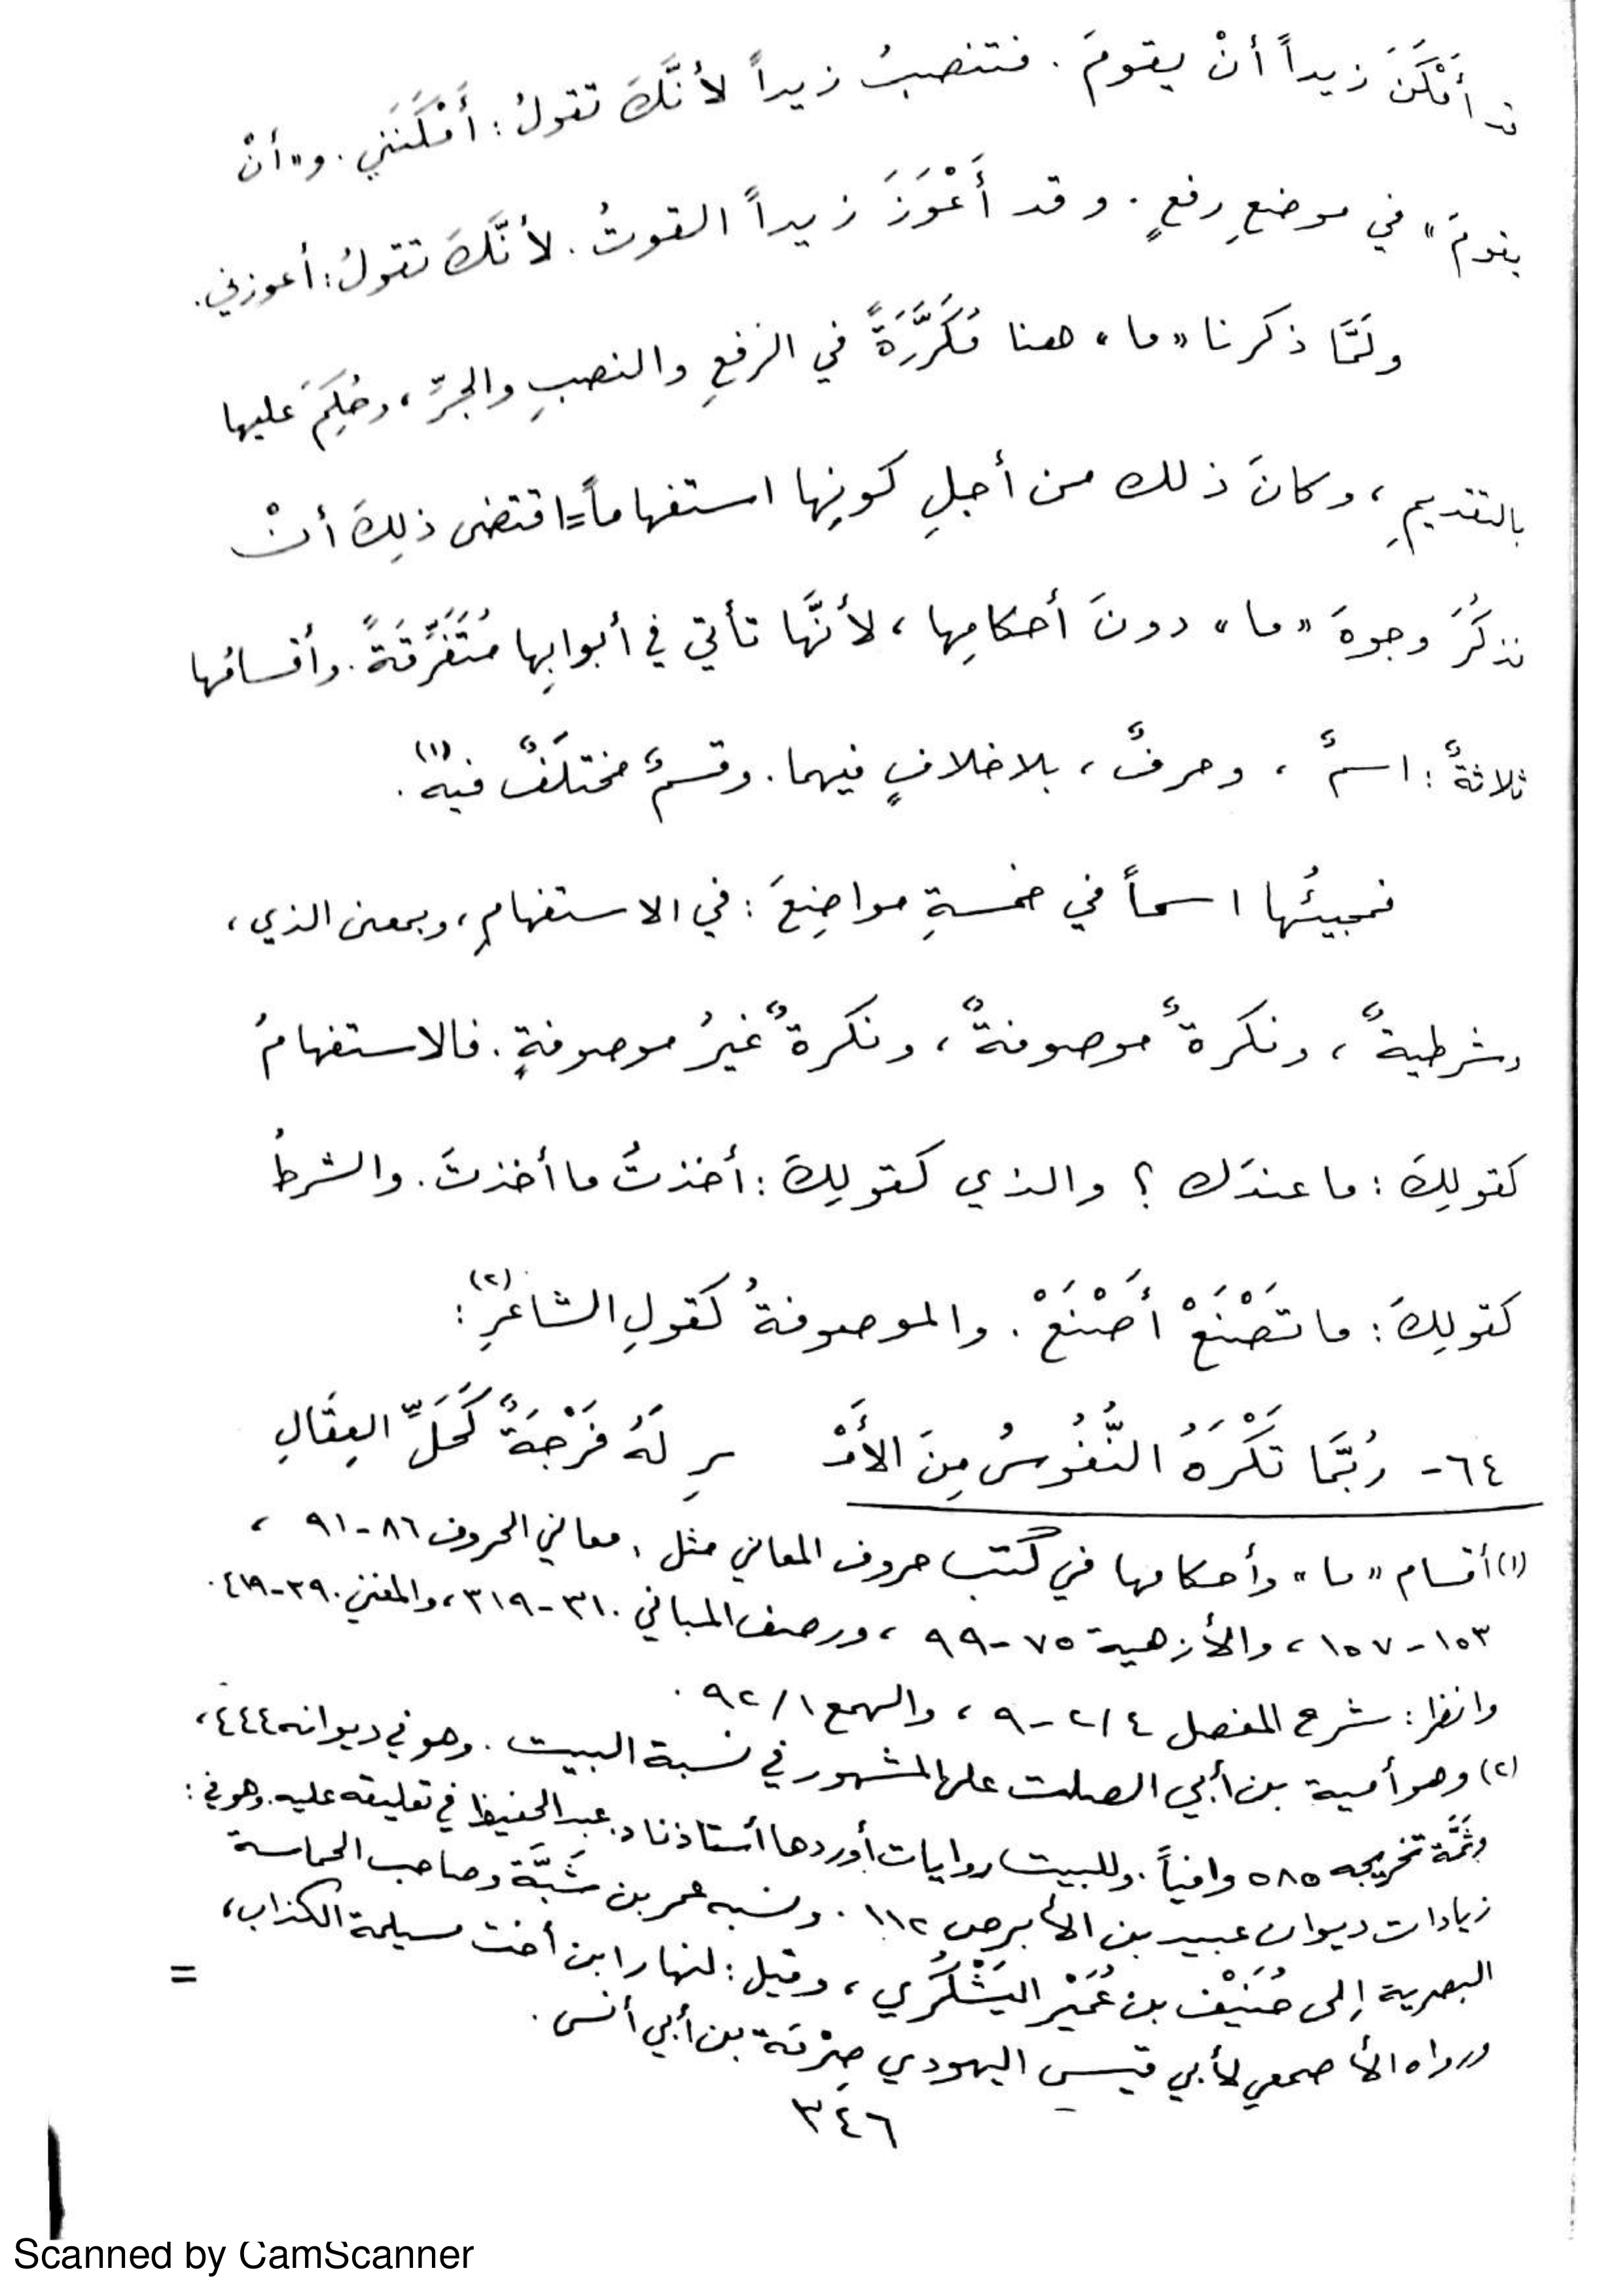 قد أَمْكَنَ زيداً أنْ يقومَ. فتنصبُ زيداً لأنَّكَ تقولُ: أَمْكَنَني. و«أنْ
يقومَ» في موضعِ رفعٍ. وقد أَعْوَزَ زيداً القوتُ. لأنَّكَ تقولُ: أعوزني.
ولَمَّا ذكرنا «ما» ههنا مُكَرَّرَةً في الرفعِ والنصبِ والجرِّ، وحُكِمَ عليها
بالتقديمِ، وكانَ ذلك من أجلِ كونِها استفهاماً= اقتضى ذلِكَ أنْ
نذكُرَ وجوهَ «ما» دونَ أحكامِها، لأنَّها تأتي في أبوابِها مُتَفَرِّقَةً. وأقسامُها
ثلاثةٌ: اسمٌ، وحرفٌ، بلا خلافٍ فيهما. وقسمٌ مختلَفٌ فيه(١).
فمجيئُها اسماً في خمسةِ مواضِعَ: في الاستفهامِ، وبمعنى الذي،
وشرطيةٌ، ونكرةٌ موصوفةٌ، ونكرةٌ غيرُ موصوفةٍ. فالاستفهامُ
كقولِكَ: ما عندَك؟ والذي كقولِكَ: أخذتُ ما أخذتَ. والشرطُ
كقولِكَ: ما تَصْنَعْ أَصْنَعْ. والموصوفةُ كقولِ الشاعرِ(٢):
٦٤- رُبَّمَا تَكْرَهُ النُّفُوسُ مِنَ الأَمْـ ـرِ لَهُ فَرْجَةٌ كَحَلِّ العِقَالِ
(١) أقسام «ما» وأحكامها في كتب حروف المعاني مثل: معاني الحروف ٨٦-٩١،
١٥٣-١٥٧، والأزهية ٧٥-٩٩، ورصف المباني ٣١٠-٣١٩، والمغني ٣٩٠-٤١٩.
وانظر: شرح المفصل ٢/٤-٩، والهمع ٩٢/١.
(٢) وهو أمية بن أبي الصلت على المشهور في نسبة البيت. وهو في ديوانه ٤٤٤،
وثَمَّة تخريجه ٥٨٥ وافياً. وللبيت روايات أوردها أستاذنا د. عبد الحفيظ في تعليقه عليه. وهو في:
زيادات ديوان عبيد بن الأبرص ١١٢. ونسبه عمر بن شَبَّة وصاحب الحماسة
البصرية إلى حُنَيْف بن عُمَيْر اليَشْكُري، وقيل: لنهار ابن أخت مسيلمة الكذاب،
ورواه الأصمعي لأبي قيس اليهودي صِرْمَة بن أبي أنس.
=
٣٤٦
Scanned by CamScanner